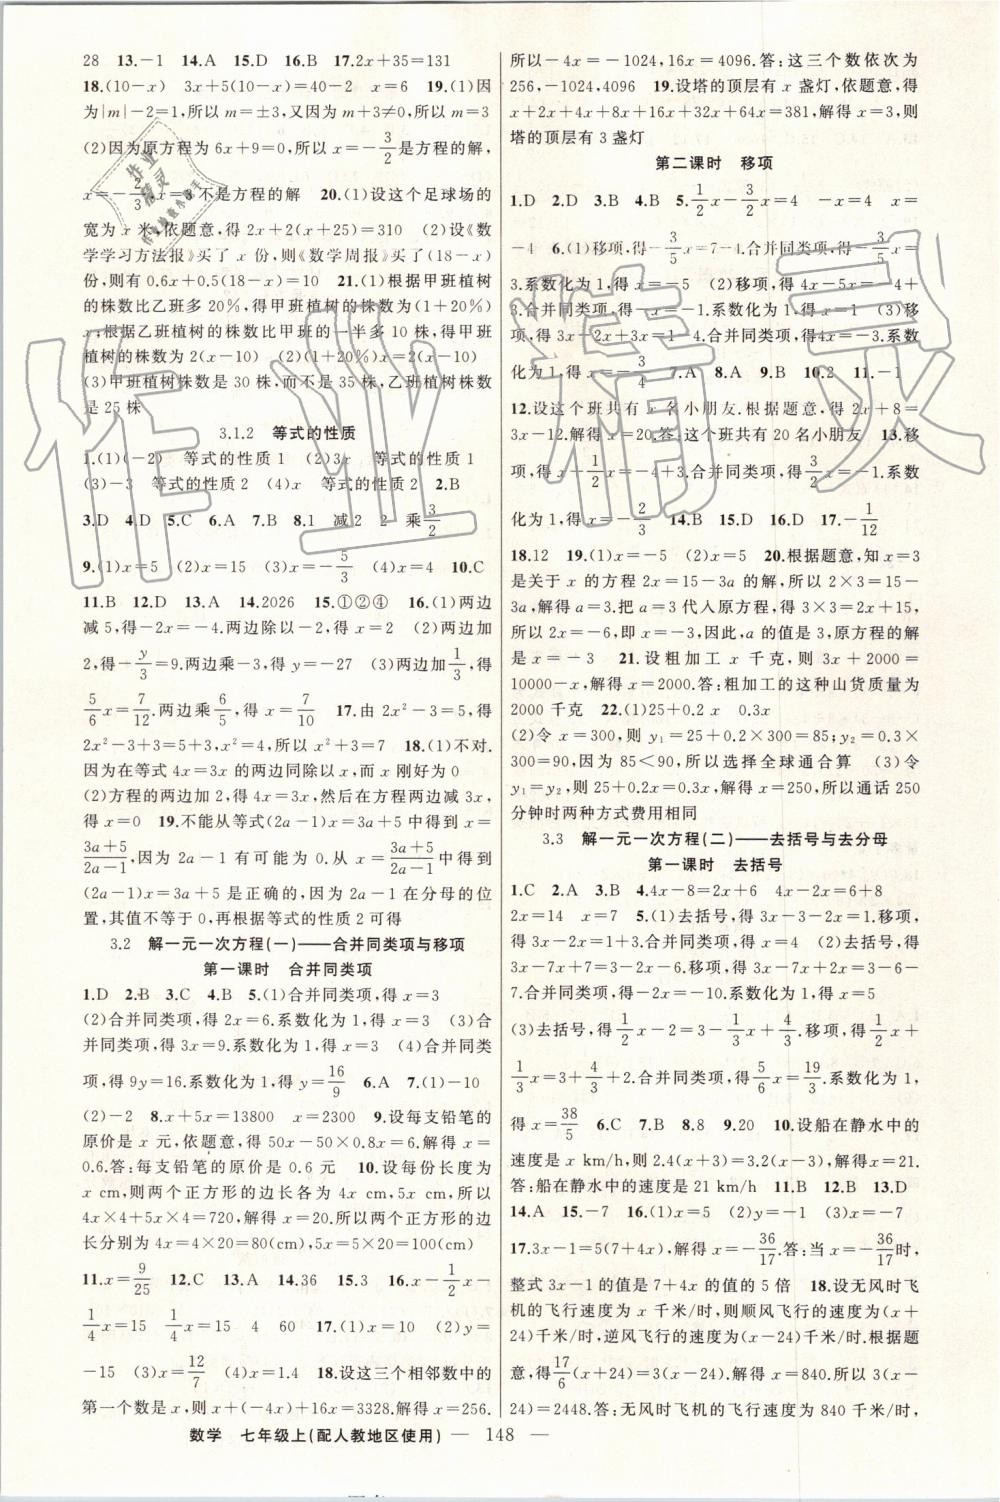 28　13.－1　14.A　15.D　16.B　17.2x＋35＝131
18.(10－x)　3x＋5(10－x)＝40－2　x＝6　19.(1)因
为|m|－2＝1,所以 m＝±3,又因为 m＋3≠0,所以 m＝3
(2)因为原方程为 6x＋9＝0,所以 x＝－3/2是方程的解,
x＝－2/3 x＝3 不是方程的解　20.(1)设这个足球场的
宽为 x 米,依题意,得 2x＋2(x＋25)＝310　(2)设《数
学学习方法报》买了 x 份,则《数学周报》买了(18－x)
份,则有 0.6x＋0.5(18－x)＝10　21.(1)根据甲班植树
的株数比乙班多 20％,得甲班植树的株数为(1＋20％)
x,根据乙班植树的株数比甲班的一半多 10 株,得甲班
植树的株数为 2(x－10)　(2)(1＋20％)x＝2(x－10)
(3)甲班植树株数是 30 株,而不是 35 株,乙班植树株数
是 25 株
3.1.2　等式的性质
1.(1)(－2)　等式的性质 1　(2)3x　等式的性质 1
(3)－3　等式的性质 2　(4)x　等式的性质 2　2.B
3.D　4.D　5.C　6.A　7.B　8.1　减2　2　乘3/2
9.(1)x＝5　(2)x＝15　(3)x＝－5/3　(4)x＝4　10.C
11.B　12.D　13.A　14.2026　15.①②④　16.(1)两边
减 5,得－2x＝－4.两边除以－2,得 x＝2　(2)两边加
2,得－y/3＝9.两边乘－3,得 y＝－27　(3)两边加1/3,得
5/6x＝7/12.两边乘6/5,得 x＝7/10　17.由 2x²－3＝5,得
2x²－3＋3＝5＋3,x²＝4,所以 x²＋3＝7　18.(1)不对.
因为在等式 4x＝3x 的两边同除以 x,而 x 刚好为 0
(2)方程的两边加 2,得 4x＝3x,然后在方程两边减 3x,
得 x＝0　19.不能从等式(2a－1)x＝3a＋5 中得到 x＝
(3a＋5)/(2a－1),因为 2a－1 有可能为 0.从 x＝(3a＋5)/(2a－1)中得到
(2a－1)x＝3a＋5 是正确的,因为 2a－1 在分母的位
置,其值不等于 0,再根据等式的性质 2 可得
3.2　解一元一次方程(一)——合并同类项与移项
第一课时　合并同类项
1.D　2.B　3.C　4.B　5.(1)合并同类项,得 x＝3
(2)合并同类项,得 2x＝6.系数化为 1,得 x＝3　(3)合
并同类项,得 3x＝9.系数化为 1,得 x＝3　(4)合并同类
项,得 9y＝16.系数化为 1,得 y＝16/9　6.A　7.(1)－10
(2)－2　8.x＋5x＝13800　x＝2300　9.设每支铅笔的
原价是 x 元,依题意,得 50x－50×0.8x＝6.解得 x＝
0.6.答:每支铅笔的原价是 0.6 元　10.设每份长度为
x cm,则两个正方形的边长各为 4x cm,5x cm,所以
4x×4＋5x×4＝720,解得 x＝20.所以两个正方形的边
长分别为 4x＝4×20＝80(cm),5x＝5×20＝100(cm)
11.x＝9/25　12.C　13.A　14.36　15.3　16.x－1/2x－
1/4x＝15　1/4x＝15　4　60　17.(1)x＝10　(2)y＝
－15　(3)x＝12/7　(4)x＝1.4　18.设这三个相邻数中的
第一个数是 x,则 x＋(－4x)＋16x＝3328.解得 x＝256.
所以－4x＝－1024,16x＝4096.答:这三个数依次为
256,－1024,4096　19.设塔的顶层有 x 盏灯,依题意,得
x＋2x＋4x＋8x＋16x＋32x＋64x＝381,解得 x＝3,则
塔的顶层有 3 盏灯
第二课时　移项
1.D　2.D　3.B　4.B　5.1/2x－3/2x＝4　－x＝4　x＝
－4　6.(1)移项,得－3/5x＝7－4.合并同类项,得－3/5x＝
3.系数化为 1,得 x＝－5　(2)移项,得 4x－5x＝－4＋
3.合并同类项,得－x＝－1.系数化为 1,得 x＝1　(3)移
项,得 3x－2x＋3x＝1－4.合并同类项,得4x＝－3.系数
化为 1,得 x＝－3/4　7.A　8.A　9.B　10.2　11.－1
12.设这个班共有 x 名小朋友.根据题意,得 2x＋8＝
3x－12.解得 x＝20.答:这个班共有 20 名小朋友　13.移
项,得 x－1/2x＝－4＋3.合并同类项,得3/2x＝－1.系数
化为 1,得 x＝－2/3　14.B　15.D　16.D　17.－1/12
18.12　19.(1)x＝－5　(2)x＝5　20.根据题意,知 x＝3
是关于 x 的方程 2x＝15－3a 的解,所以 2×3＝15－
3a,解得 a＝3.把 a＝3 代入原方程,得 3×3＝2x＋15,
所以 2x＝－6,即 x＝－3,因此,a 的值是 3,原方程的解
是 x＝－3　21.设粗加工 x 千克,则 3x＋2000＝
10000－x,解得 x＝2000.答:粗加工的这种山货质量为
2000 千克　22.(1)25＋0.2 x　0.3x
(2)令 x＝300,则 y₁＝25＋0.2×300＝85;y₂＝0.3×
300＝90,因为 85＜90,所以选择全球通合算　(3)令
y₁＝y₂,则 25＋0.2x＝0.3x,解得 x＝250,所以通话 250
分钟时两种方式费用相同
3.3　解一元一次方程(二)——去括号与去分母
第一课时　去括号
1.C　2.A　3.B　4.4x－8＝2x＋6　4x－2x＝6＋8
2x＝14　x＝7　5.(1)去括号,得 3x－3－2x＝1.移项,
得 3x－2x＝1＋3.合并同类项,得 x＝4　(2)去括号,得
3x－7x＋7＝3－2x－6.移项,得 3x－7x＋2x＝3－6－
7.合并同类项,得－2x＝－10.系数化为 1,得 x＝5
(3)去括号,得1/2x－2＝3－1/3x＋4/3.移项,得1/2x＋
1/3x＝3＋4/3＋2.合并同类项,得5/6x＝19/3.系数化为 1,
得 x＝38/5　6.C　7.B　8.B　9.20　10.设船在静水中的
速度是 x km/h,则 2.4(x＋3)＝3.2(x－3),解得 x＝21.
答:船在静水中的速度是 21 km/h　11.B　12.B　13.D
14.A　15.－7　16.(1)x＝5　(2)y＝－1　(3)x＝－7
17.3x－1＝5(7＋4x),解得 x＝－36/17.答:当 x＝－36/17时,
整式 3x－1 的值是 7＋4x 的值的 5 倍　18.设无风时飞
机的飞行速度为 x 千米/时,则顺风飞行的速度为(x＋
24)千米/时,逆风飞行的速度为(x－24)千米/时.根据题
意,得17/6(x＋24)＝3(x－24).解得 x＝840.所以 3(x－
24)＝2448.答:无风时飞机的飞行速度为 840 千米/时,
数学　七年级上(配人教地区使用)　— 148 —
作业精灵